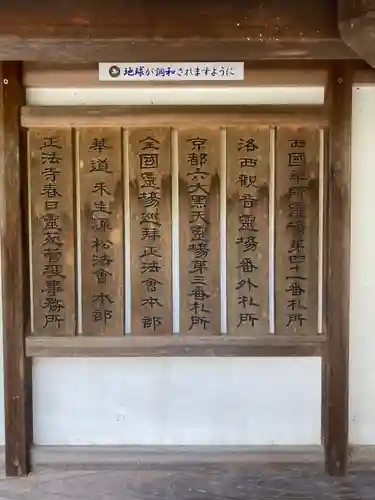 地球が調和されますように
西国薬師霊場第四十一番札所
洛西観音霊場番外札所
京都六大黒天霊場第三番札所
全國霊場巡拝正法會本部
華道未生源松法會本部
正法寺春日霊苑管理事務所